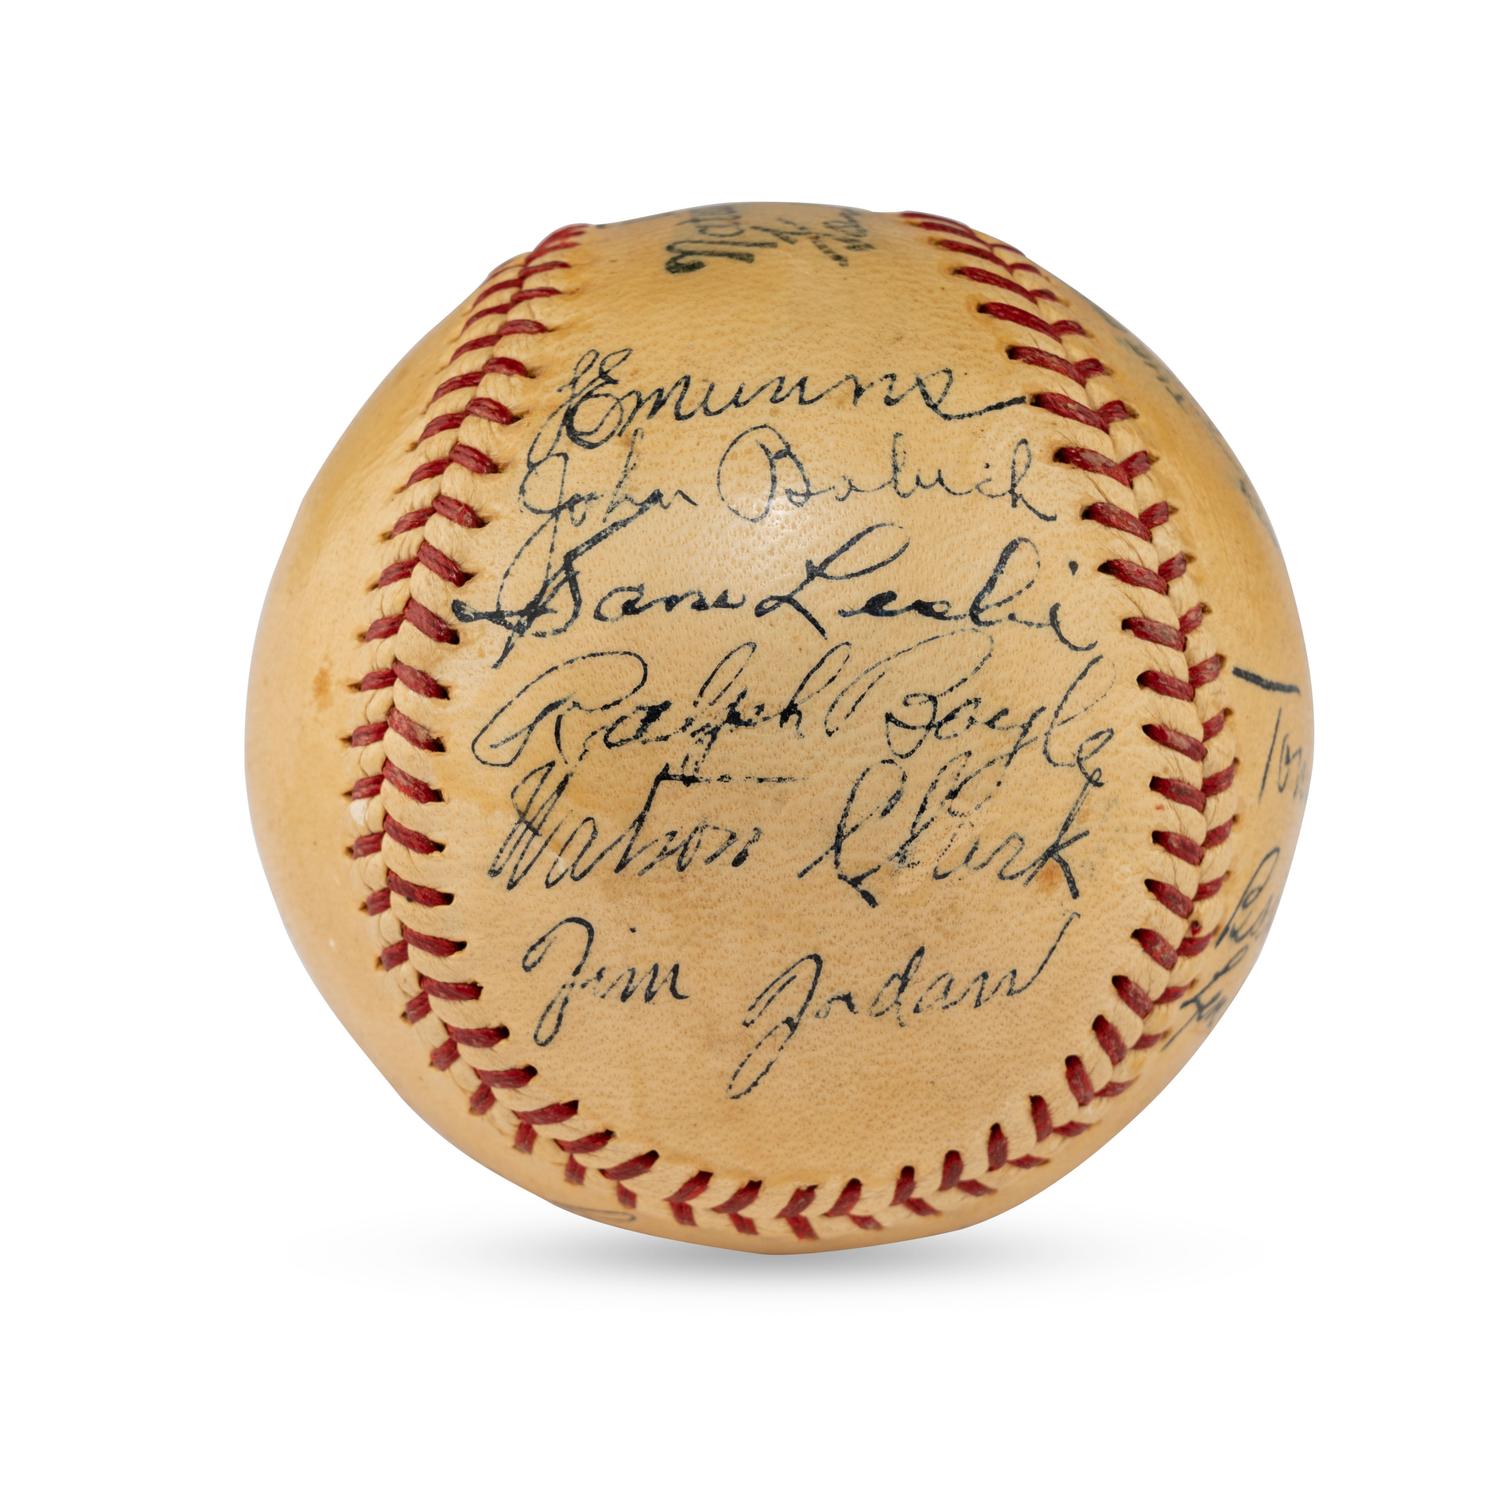 LEmunns
John Babich
Sam Leslie
Ralph Boyle
Watson Clark
Jim Jordan